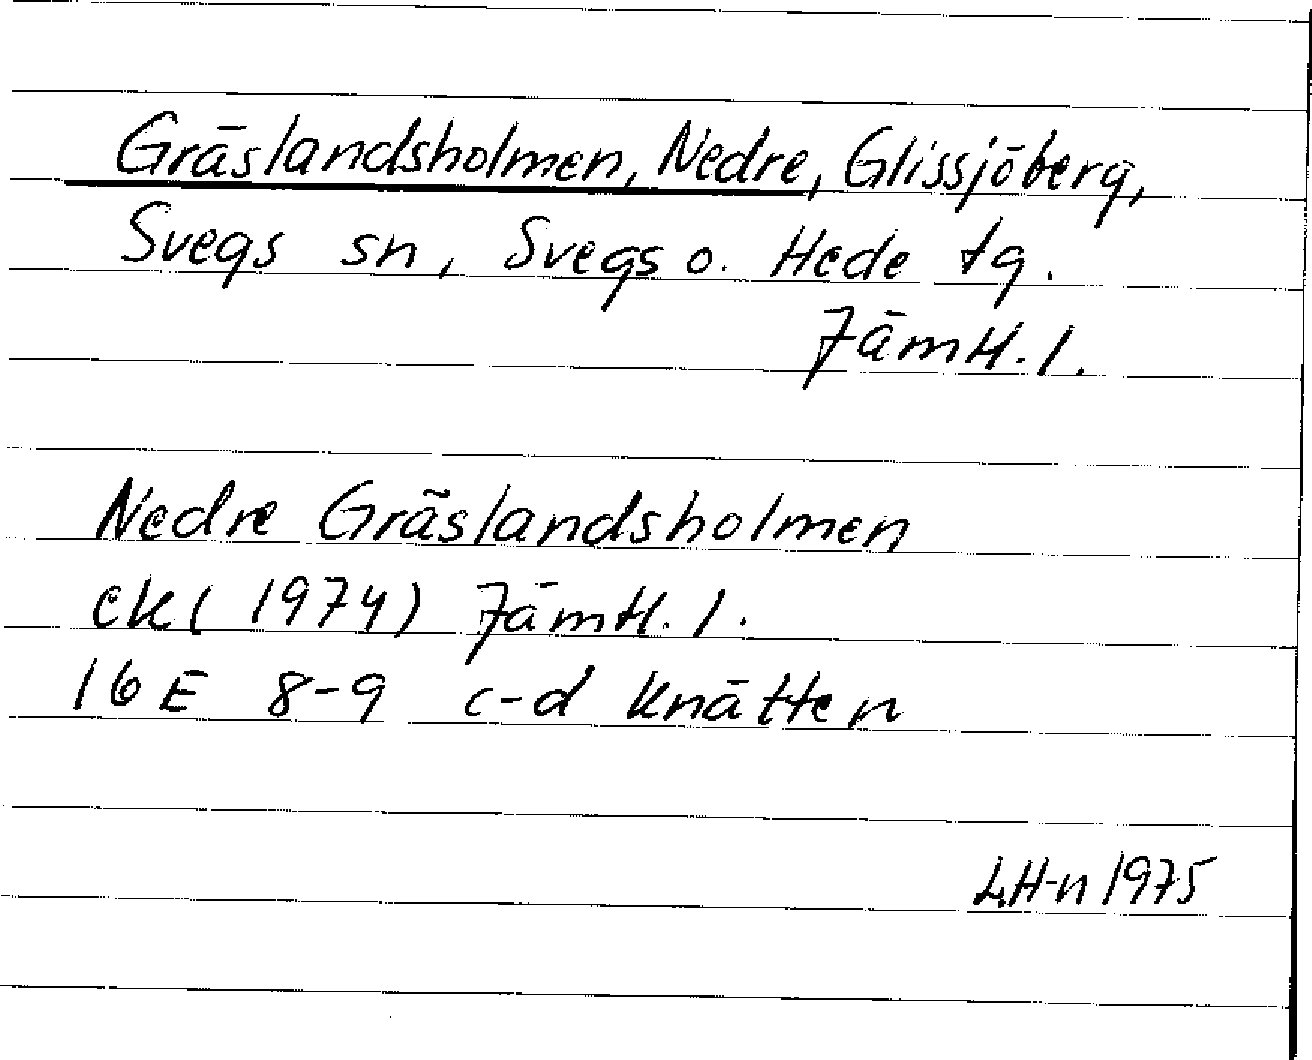 Gräslandsholmen, Nedre, Glissjöberg,
Svegs sn, Svegs o. Hede tg.
Jämtl. l.
Nedre Gräslandsholmen
ek (1974) Jämtl. l.
16 E 8-9 c-d Knätten
LH-n 1975